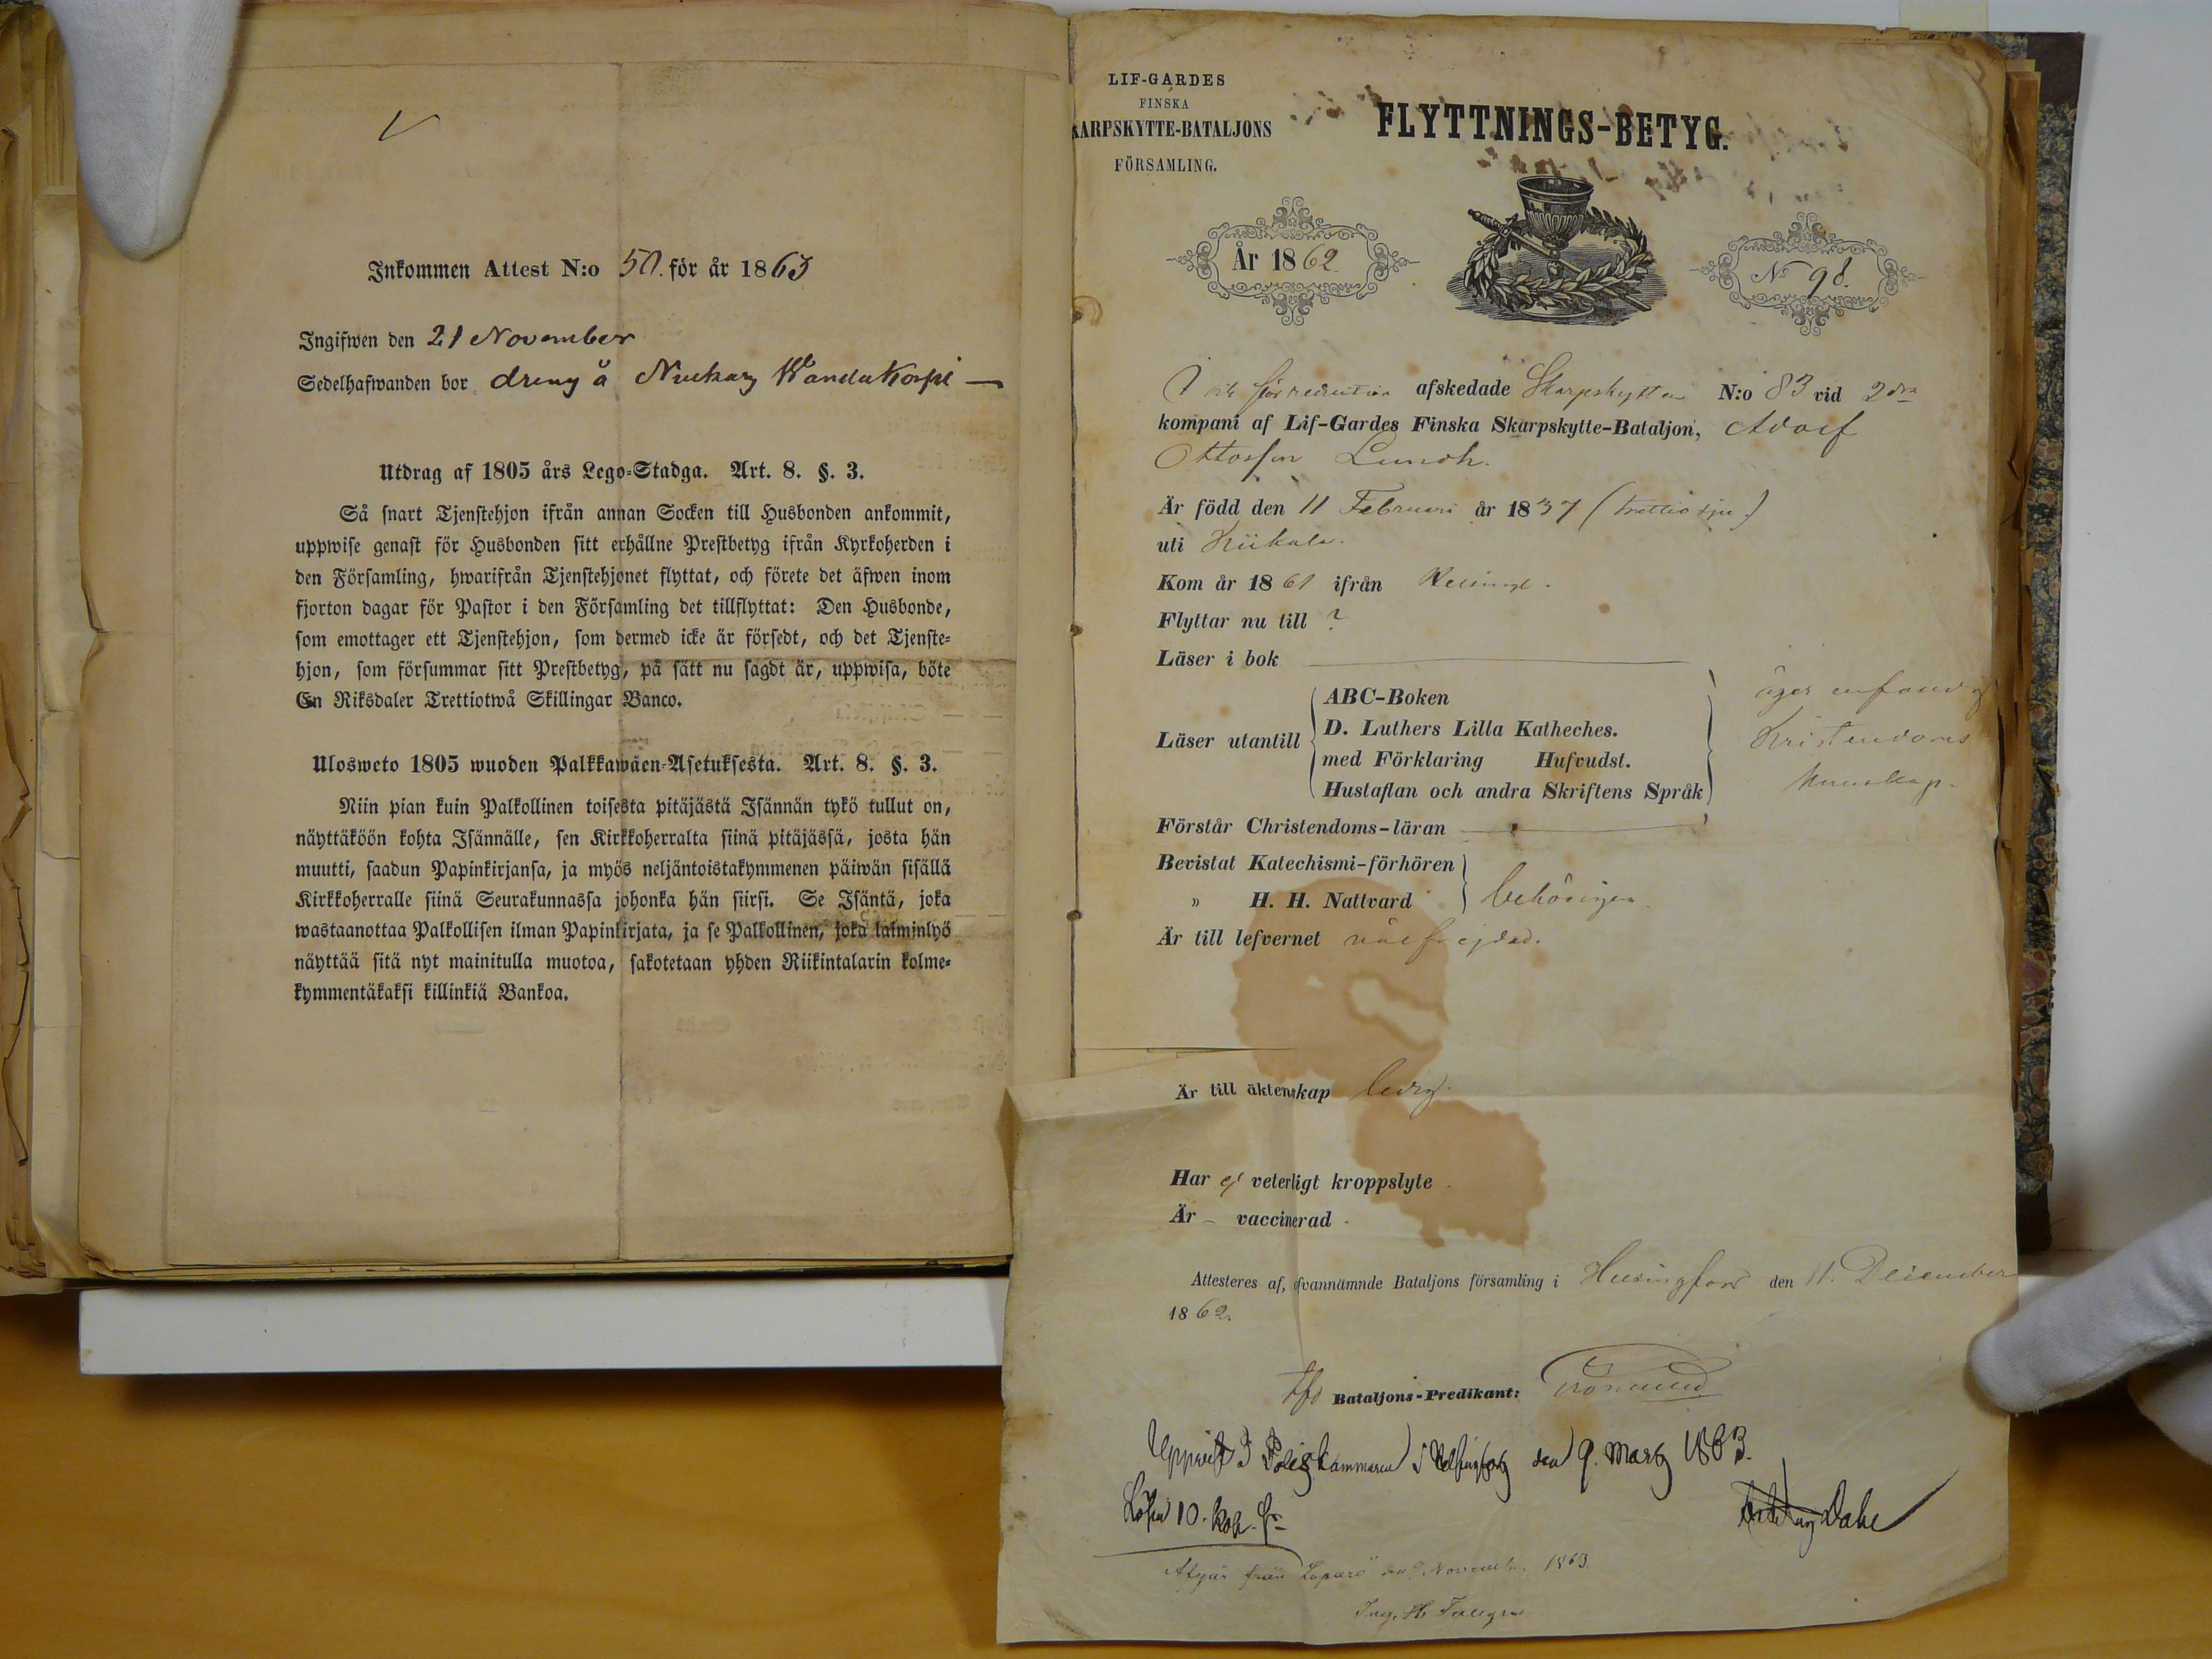 Inkommen Attest N:o 50. för år 1863
Ingifwen den 21 November
Sedelhafwanden bor dreng å Nuckary Wandakorpi —
Utdrag af 1805 års Lego-Stadga. Art. 8. §. 3.
Så snart Tjenstehjon ifrån annan Socken till Husbonden ankommit,
uppwise genast för Husbonden sitt erhållne Prestbetyg ifrån Kyrkoherden i
den Församling, hwarifrån Tjenstehjonet flyttat, och förete det äfwen inom
fjorton dagar för Pastor i den Församling det tillflyttat: Den Husbonde,
som emottager ett Tjenstehjon, som dermed icke är försedt, och det Tjenste-
hjon, som försummar sitt Prestbetyg, på sätt nu sagdt är, uppwisa, böte
En Riksdaler Trettiotwå Skillingar Banco.
Ulosweto 1805 wuoden Palkkawäen-Asetuksesta. Art. 8. §. 3.
Niin pian kuin Palkollinen toisesta pitäjästä Isännän tykö tullut on,
näyttäköön kohta Isännälle, sen Kirkkoherralta siinä pitäjässä, josta hän
muutti, saadun Papinkirjansa, ja myös neljäntoistakymmenen päiwän sisällä
Kirkkoherralle siinä Seurakunnassa johonka hän siirsi. Se Isäntä, joka
wastaanottaa Palkollisen ilman Papinkirjata, ja se Palkollinen, joka laiminlyö
näyttää sitä nyt mainitulla muotoa, sakotetaan yhden Riikintalarin kolme-
kymmentäkaksi killinkiä Bankoa.
LIF-GARDES
FINSKA
KARPSKYTTE-BATALJONS
FÖRSAMLING.
FLYTTNINGS-BETYG.
År 1862.
No 98.
för reduction afskedade Skarpskytten N:o 83 vid 2dra
kompani af Lif-Gardes Finska Skarpskytte-Bataljon, Adolf
Ottosson Lundh.
Är född den 11 Februari år 1837 (trettio sju)
uti Kiikala.
Kom år 1861 ifrån
Flyttar nu till ?
Läser i bok
Läser utantill
ABC-Boken
D. Luthers Lilla Katheches.
med Förklaring Hufvudst.
Hustaflan och andra Skriftens Språk
äger enfaldig
Kristendoms
kunskap.
Förstår Christendoms-läran
Bevistat Katechismi-förhören
" H. H. Nattvard
behörigen.
Är till lefvernet välfrejdad.
Är till äktenskap ledig.
Har ej veterligt kroppslyte
Är – vaccinerad
Attesteres af, ofvannämnde Bataljons församling i Helsingfors den 11. December
1862.
Bataljons-Predikant:
Uppvist I Poliskammaren i Helsingfors den 9. Marts 1863.
Lösen 10. Kop. Sr
Dahl
Afgår från Loparö den 9 November 1863.